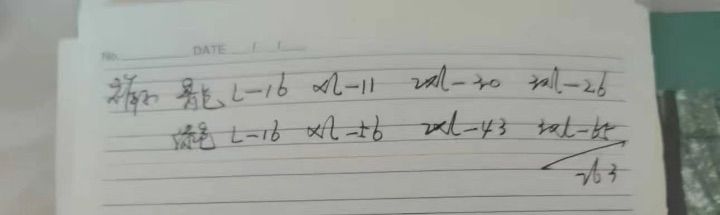 No. DATE / /
黑色 L-16 XL-11 2XL-30 3XL-26
色 L-16 XL-56 2XL-43 3XL-65
263